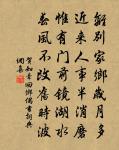 離別家鄉歲月多
近來人事半消磨
惟有門前鏡湖水
春風不改舊時波
賀知章回鄉偶書朝興